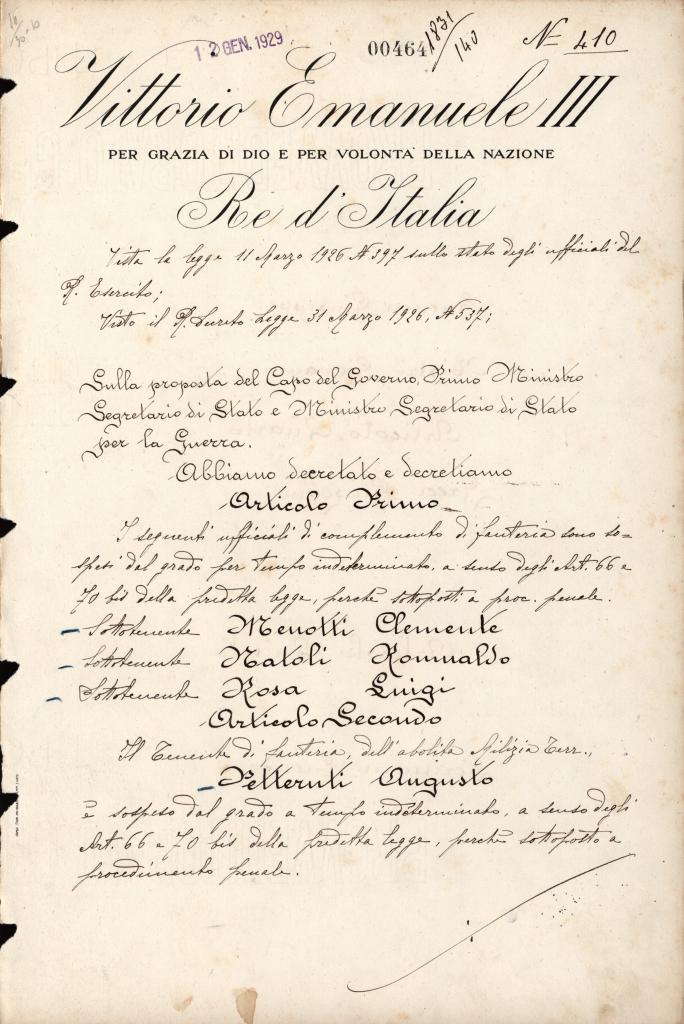 12 GEN. 1929
00464
1831/140
N= 410
Vittorio Emanuele III
PER GRAZIA DI DIO E PER VOLONTA' DELLA NAZIONE
Re d'Italia
Vista la legge 11 Marzo 1926 N 397 sullo stato degli ufficiali del
R. Esercito;
Visto il R. Decreto Legge 31 Marzo 1926, N 537;
Sulla proposta del Capo del Governo, Primo Ministro
Segretario di Stato e Ministro Segretario di Stato
per la Guerra.
Abbiamo decretato e decretiamo
Articolo Primo
I seguenti ufficiali di complemento di fanteria sono so=
spesi dal grado per tempo indeterminato, a senso degli Art. 66 e
70 bis della predetta legge, perchè sottoposti a proc. penale.
– Sottotenente Menotti Clemente
– Sottotenente Natoli Romualdo
– Sottotenente Rosa Luigi
Articolo Secondo
Il Tenente di fanteria, dell'abolita Milizia Terr.,
– Petteruti Augusto
è sospeso dal grado a tempo indeterminato, a senso degli
Art. 66 e 70 bis della predetta legge, perchè sottoposto a
procedimento penale.